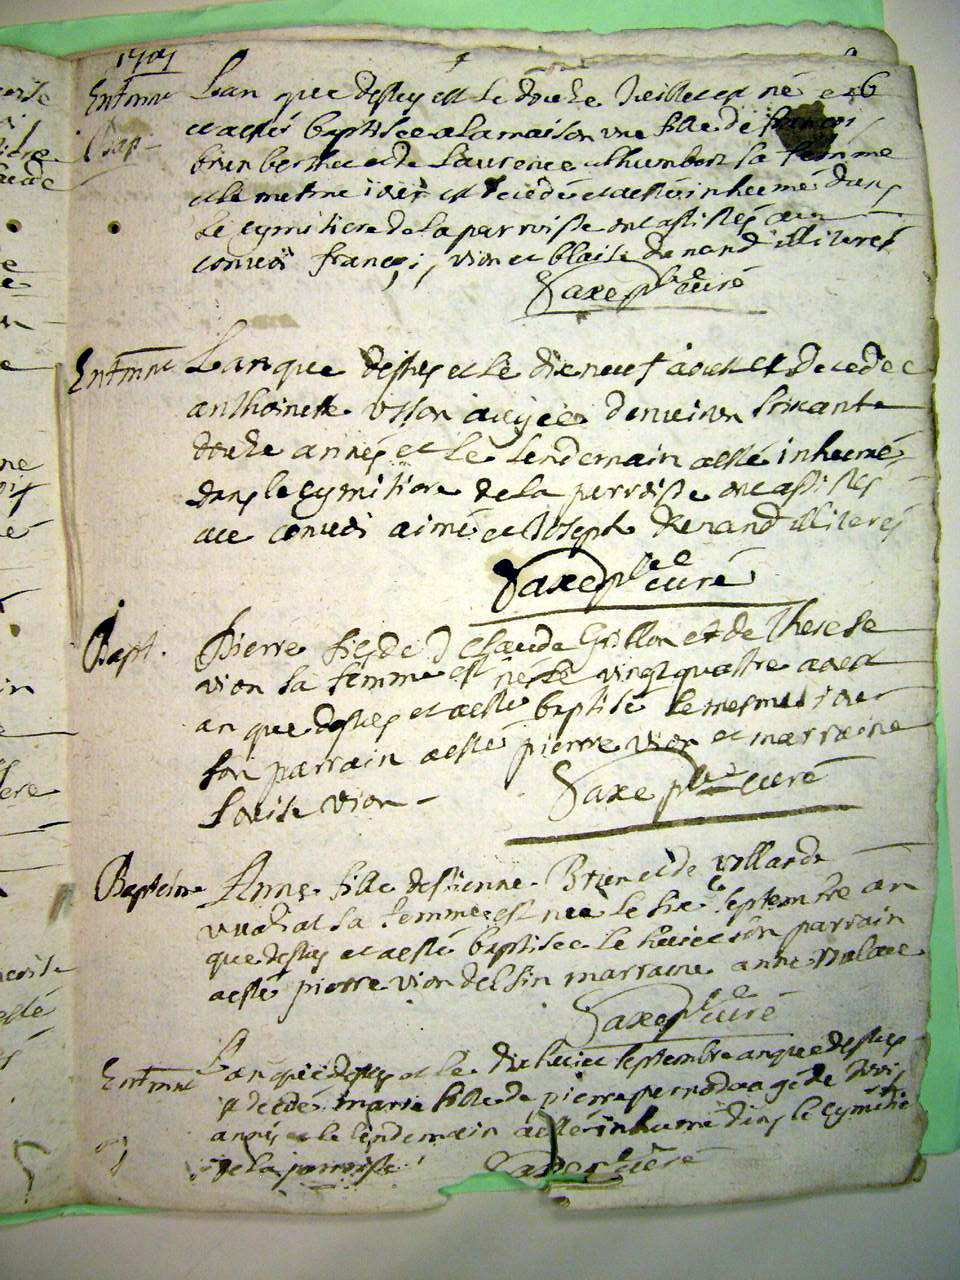 Entmnt Lan que dessus et le douze Juillet est né
Bap et a esté baptisée a la maison une fille de françois
brun berthet et de Laurence humbert sa femme
et le mesme iour est decedé et a esté inhumé dans
Le cymitiere de la parroisse ont assistés au
convoi françois vion et blaise Durand illiterés
Saxe pbre curé
Entmnt Lan que dessus et le dieneuf aoust est Decedée
anthoinette usson aagée denviron soixante
douze années et le lendemain a esté inhumé
dans le cymitiere de la parroisse ont assistés
au convoi aimé et Joseph Durand illiterés
Saxe pbre curé
Bapt. Pierre fils de Claude Grillon et de Therese
vion sa femme est né le vingt quattre aoust
an que dessus et a esté baptisé le mesme iour
son parrain a esté pierre vion et marraine
Louise vion
Saxe pbre curé
Bapteme Anne fille destienne Brun et de
sa femme est née le six septembre an
que dessus et a esté baptisée le huict son parrain
a esté pierre vion marraine anne
Saxe pbre curé
Entmnt Lan que dessus et le dixhuict septembre an que dessus
decedé marie fille de pierre agé de trois
années et le lendemain a esté inhumé dans le cymitiere
de la parroisse Saxe pbre curé